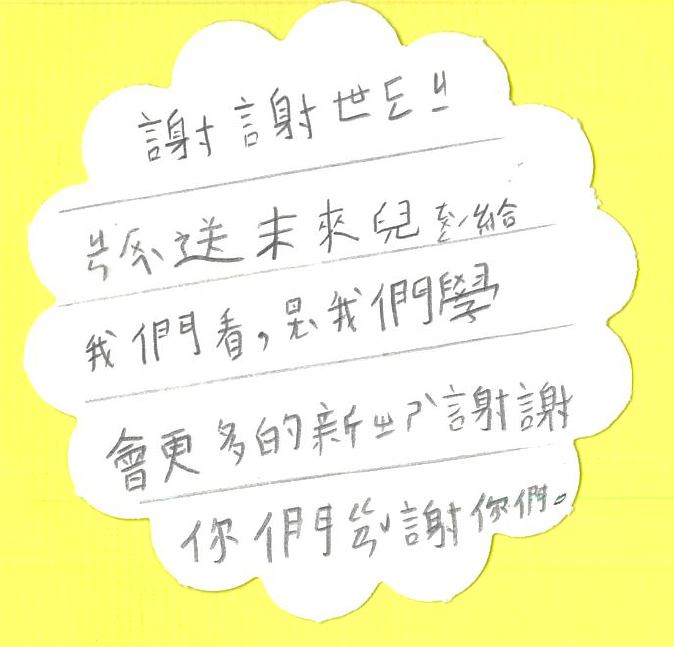 謝謝世
送未來兒給
我們看,我們學
會更多的新謝謝
你們謝你們。